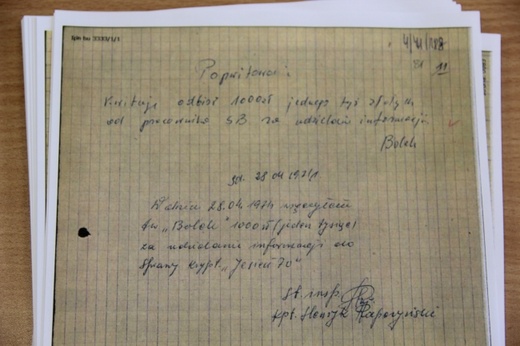 4/41/108
11
Pokwitowanie
Kwituję odbiór 1000 zł jednego tys złotych
od pracownika SB za udzielanie informacji.
Bolek
gd. 28 04 1971r
W dniu 28.04 1971 wręczyłem
tw. „Bolek" 1000 zł (jeden tysiąc)
za udzielanie informacji do
sprawy krypt. „Jesień 70"
St. insp.
kpt. Henryk Rapczyński